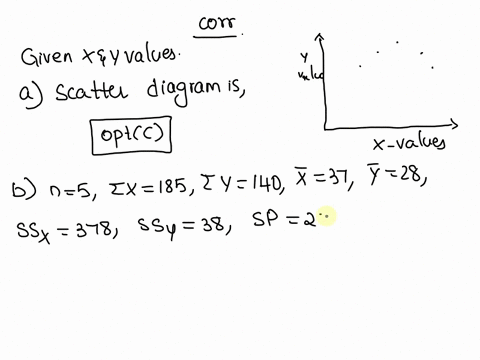 corr
Given X & Y values.
a) Scatter diagram is,
opt(C)
Y
value
X-values
b) n=5, ΣX=185, ΣY=140, X̄=37, Ȳ=28,
SSx=378, SSy=38, SP=2